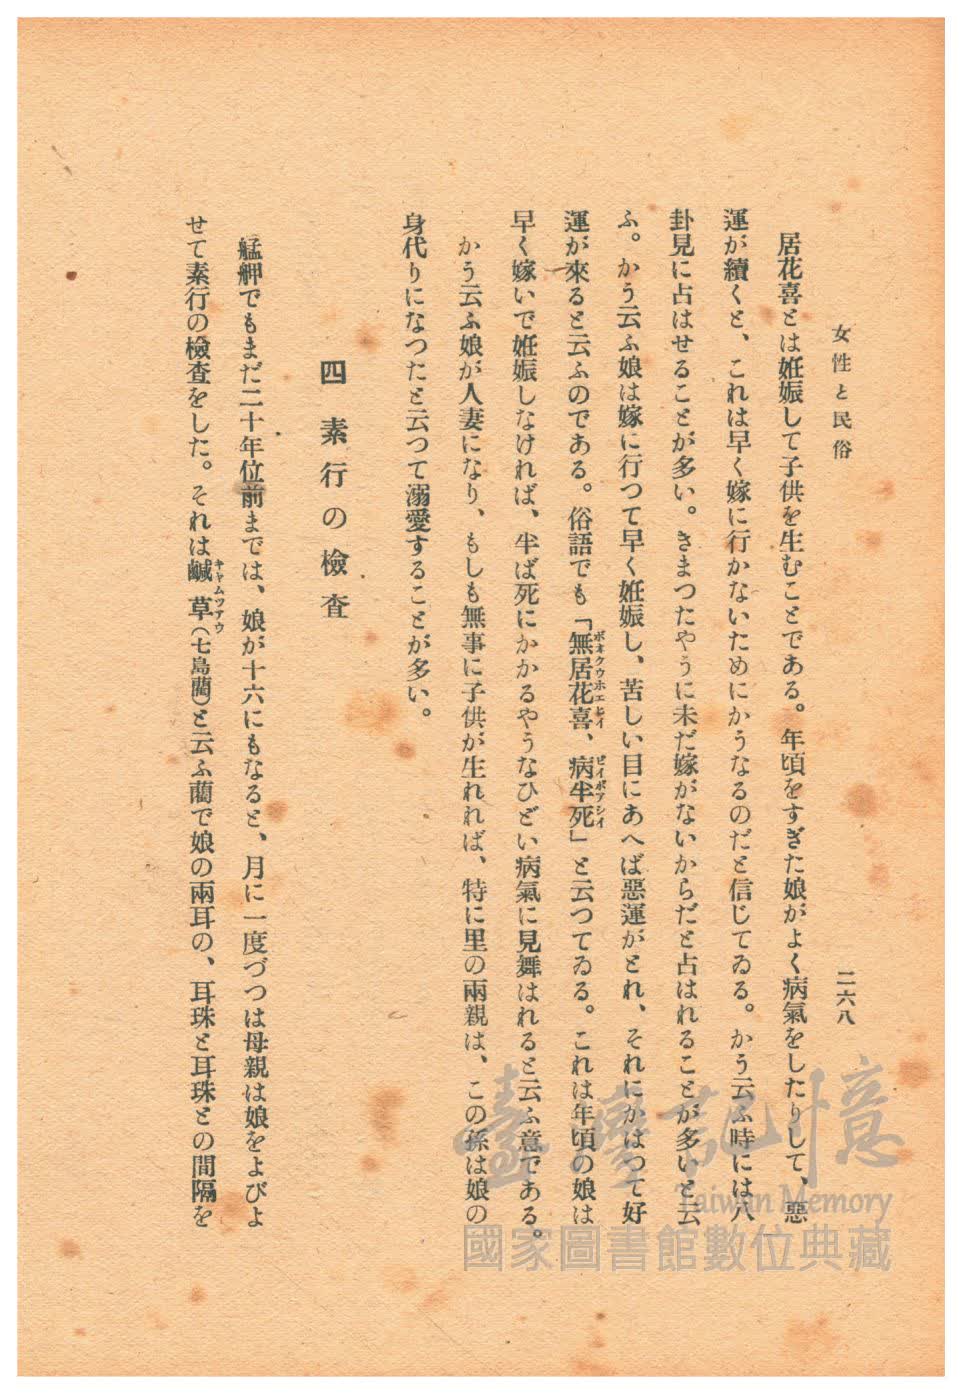 女性と民俗
二六八
居花喜とは姙娠して子供を生むことである。年頃をすぎた娘がよく病氣をしたりして、惡
運が續くと、これは早く嫁に行かないためにかうなるのだと信じてゐる。かう云ふ時には八
卦見に占はせることが多い。きまつたやうに未だ嫁がないからだと占はれることが多いと云
ふ。かう云ふ娘は嫁に行つて早く姙娠し、苦しい目にあへば惡運がとれ、それにかはつて好
運が來ると云ふのである。俗語でも「無居花喜、病半死」と云つてゐる。これは年頃の娘は
ボオクウホエヒイ
ピイポアシイ
早く嫁いで姙娠しなければ、半ば死にかかるやうなひどい病氣に見舞はれると云ふ意である。
かう云ふ娘が人妻になり、もしも無事に子供が生れれば、特に里の兩親は、この孫は娘の
身代りになつたと云つて溺愛することが多い。
四 素行の檢査
艋舺でもまだ二十年位前までは、娘が十六にもなると、月に一度づつは母親は娘をよびよ
せて素行の檢査をした。それは鹹草(七島藺)と云ふ藺で娘の兩耳の、耳珠と耳珠との間隔を
キャムツアウ
臺灣記憶
Taiwan Memory
國家圖書館數位典藏